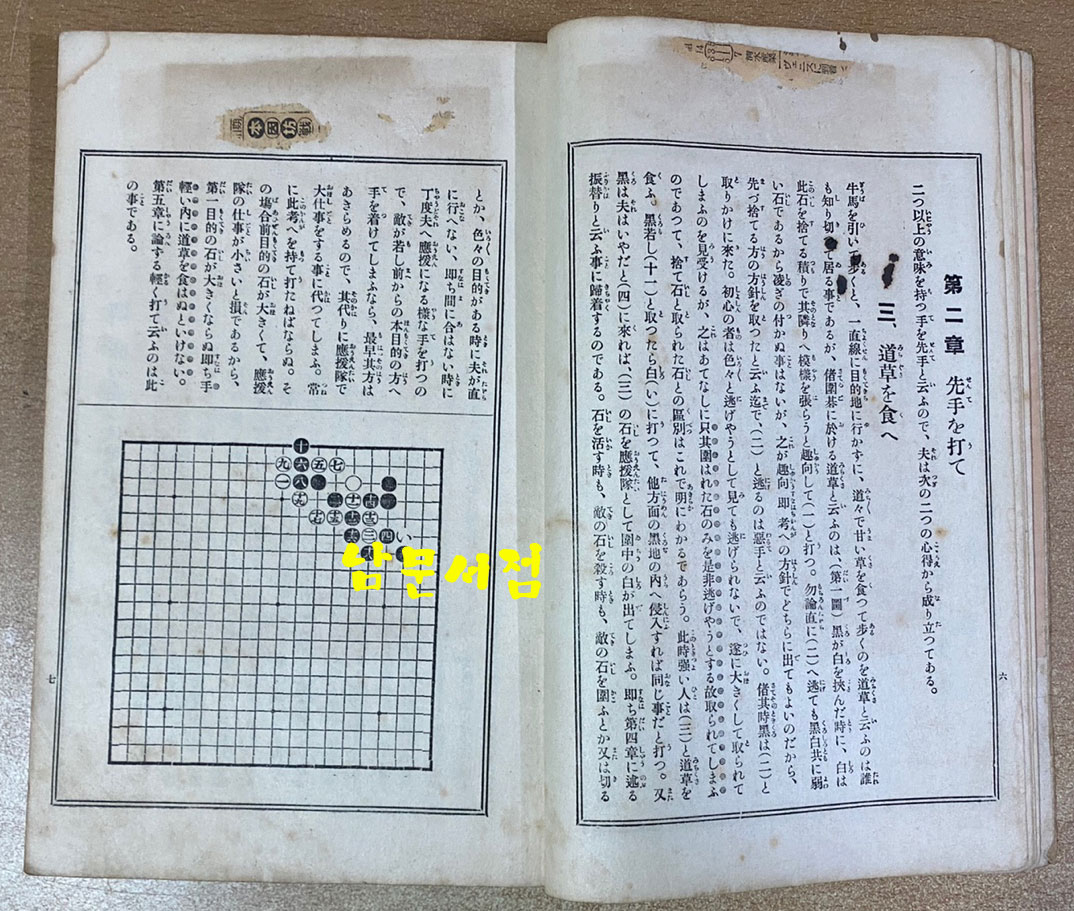 第二章 先手を打て
二つ以上の意味を持つ手を先手と云ふので、夫は次の二つの心得から成り立つてある。
三、道草を食へ
牛馬を引いて歩くと、一直線に目的地に行かずに、道々で甘い草を食つて歩くのを道草と云ふのは誰
も知り切つて居る事であるが、偖圍碁に於ける道草と云ふのは(第一圖)黒が白を挾んだ時に、白は
此石を捨てる積りで其隣りへ模樣を張らうと趣向して(一)と打つ。勿論直に(二)へ逃ても黒白共に弱
い石であるから凌ぎの付かぬ事はないが、之が趣向即考への方針でどちらに出てもよいのだから、
先づ捨てる方の方針を取つたと云ふ迄で、(二)と逃るのは惡手と云ふのではない。偖其時黒は(二)と
取りかけに來た。初心の者は色々と逃げやうとして見ても逃げられないで、遂に大きくして取られて
しまふのを見受けるが、之はあてなしに只其圍はれた石のみを是非逃げやうとする故取られてしまふ
のであつて、捨て石と取られた石との區別はこれで明にわかるであらう。此時强い人は(三)と道草を
食ふ。黒若し(十一)と取つたら白(い)に打つて、他方面の黒地の内へ侵入すれば同じ事だと打つ。又
黒は夫はいやだと(四)に來れば、(三)の石を應援隊として圍中の白が出てしまふ。即ち第四章に述る
振替りと云ふ事に歸着するのである。石を活す時も、敵の石を殺す時も、敵の石を圍ふとか又は切る
六
とか、色々の目的がある時に夫が直
に行へない、即ち間に合はない時に
丁度夫へ應援になる樣な手を打つの
で、敵が若し前からの本目的の方へ
手を着けてしまふなら、最早其方は
あきらめるので、其代りに應援隊で
大仕事をする事に代つてしまふ。常
に此考へを持て打たねばならぬ。そ
の場合前目的の石が大きくて、應援
隊の仕事が小さいと損であるから、
第一目的の石が大きくならぬ即ち手
輕い内に道草を食はぬといけない。
第五章に論する輕く打て云ふのは此
の事である。
十
九 六 五 七
一 八
四 い
三
七
남문서점